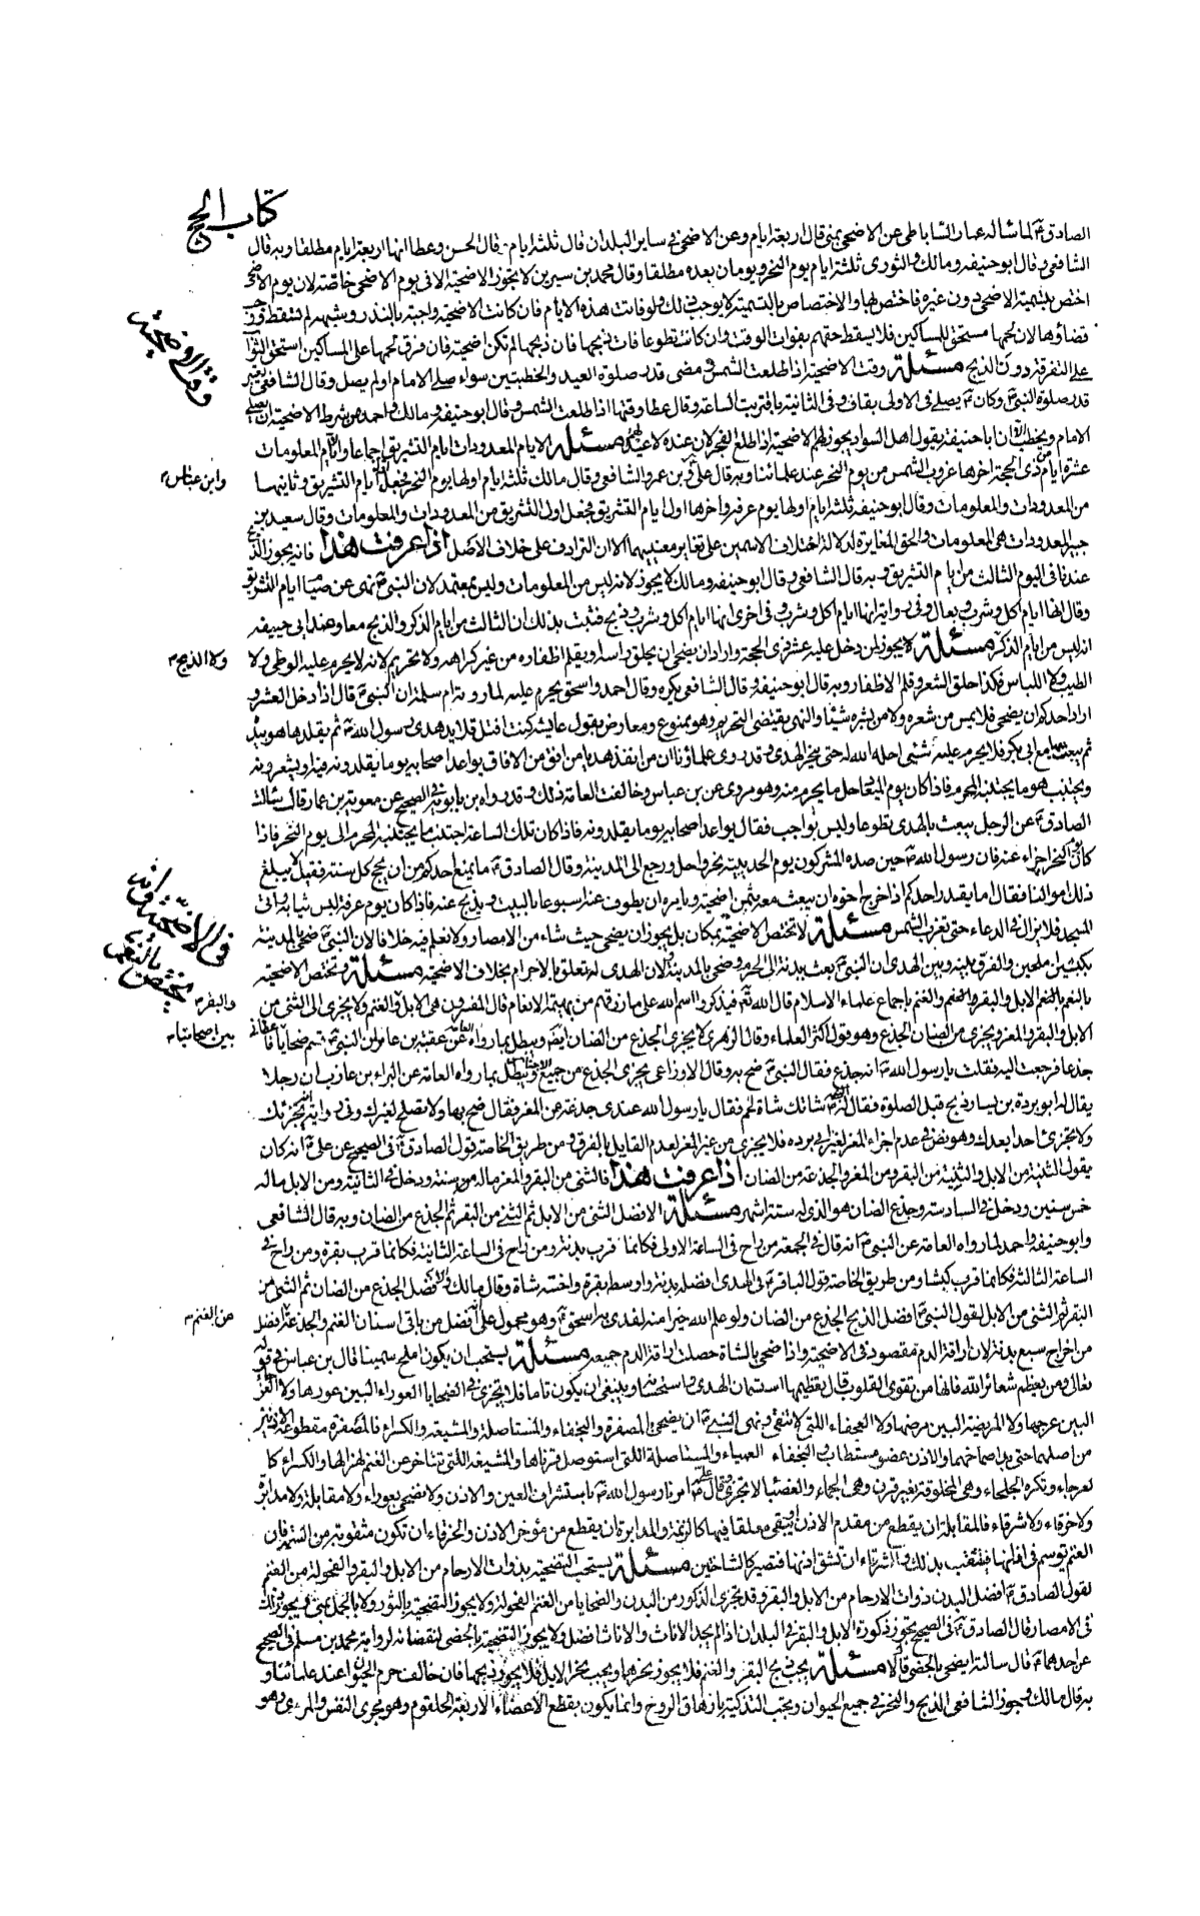 كتاب الحج
الصادق ع لما سأله عمار الساباطي عن الاضحى بمنى قال اربعة ايام وعن الاضحى في ساير البلدان قال ثلثة ايام وقال الحسن وعطا انها اربعة ايام مطلقا وبه قال
الشافعي وقال ابو حنيفه ومالك والثوري ثلثة ايام يوم النحر ويومان بعده مطلقا وقال محمد بن سيرين لا يجوز الاضحية الا في يوم الاضحى خاصة لان يوم الاضحى
اختص بتسمية الاضحى دون غيره فاختص بها والاختصاص بالتسمية لا يوجب ذلك ولو فاتت هذه الايام فان كانت الاضحية واجبة بالنذر وشبهه لم تسقط ووجب
قضاؤها لان لحمها مستحق للمساكين فلا يسقط حقهم بفوات الوقت وان كانت تطوعا فات ذبحها فان ذبحها لم تكن اضحية فان فرق لحمها على المساكين استحق الثواب
على التفرقة دون الذبح مسئلة وقت الاضحية اذا طلعت الشمس ومضى قدر صلوة العيد والخطبتين سواء صلى الامام او لم يصل وقال الشافعي يعتبر
وقت الاضحية
قدر صلوة النبي ص وكان ع يصلي في الاولى بقاف وفي الثانية باقتربت الساعة وقال عطا وقتها اذا طلعت الشمس وقال ابو حنيفة ومالك واحمد من شرط الاضحية ان يصلي
الامام ويخطب الا ان ابا حنيفة يقول اهل السواد يجوز لهم الاضحية اذا طلع الفجر لان عنده لا عيد لهم مسئلة الايام المعدودات ايام التشريق اجماعا والايام المعلومات
عشرة ايام من ذي الحجة اخرها غروب الشمس من يوم النحر عند علمائنا وبه قال علي ع وبن عمر والشافعي وقال مالك ثلثة ايام اولها يوم النحر فجعل اول ايام التشريق وثانيها
وابن عباس
من المعدودات والمعلومات وقال ابو حنيفة ثلثة ايام اولها يوم عرفة واخرها اول ايام التشريق فجعل اول التشريق من المعدودات والمعلومات وقال سعيد بن
جبير المعدودات هي المعلومات والحق المغايرة لدلالة اختلاف الاسمين على تغاير معنييهما الا ان الترادف على خلاف الاصل اذا عرفت هذا فانه يجوز الذبح
عندنا في اليوم الثالث من ايام التشريق وبه قال الشافعي وقال ابو حنيفه ومالك لا يجوز لانه ليس من المعلومات وليس بمعتمد لان النبي ص نهى عن صيام ايام التشريق
وقال انها ايام اكل وشرب وبعال وفي رواية انها ايام اكل وشرب وفي اخرى انها ايام اكل وشرب وذبح فثبت بذلك ان الثالث من ايام الذكر والذبح معا وعند ابي حنيفه
انه ليس من ايام الذكر مسئلة لا يجوز لمن دخل عليه عشر ذي الحجة واراد ان يضحي ان يحلق راسه او يقلم اظفاره من غير كراهه ولا تحريم لانه لا يحرم عليه الوطي ولا
ولا الذبح
الطيب ولا اللباس فكذا حلق الشعر وقلم الاظفار وبه قال ابو حنيفة وقال الشافعي يكره وقال احمد واسحق يحرم عليه لما روته ام سلمة ان النبي ص قال اذا دخل العشر و
اراد احدكم ان يضحي فلا يمس من شعره ولا من بشره شيئا والنهي يقتضي التحريم وهو ممنوع ومعارض بقول عايشة كنت افتل قلايد هدى رسول الله ص ثم يقلدها هو بيده
ثم يبعث بها مع ابي بكر فلا يحرم عليه شئ احله الله له حتى ينحر الهدى وقد روى علماؤنا ان من انفذ هديا من افق من الافاق يواعد اصحابه يوما يقلدونه فيه او يشعرونه
ويجتنب هو ما يجتنبه المحرم فاذا كان يوم الميعاد احل ما يحرم منه وهو مروي عن بن عباس وخالفت العامة ذلك وقد رواه بن بابويه في الصحيح عن معوية بن عمار قال سالت
الصادق ع عن الرجل يبعث بالهدى تطوعا وليس بواجب فقال يواعد اصحابه يوما يقلدونه فاذا كان تلك الساعة اجتنب ما يجتنبه المحرم الى يوم النحر فاذا
كان يوم النحر اجزاء عنه فان رسول الله ص حين صده المشركون يوم الحديبية نحر واحل ورجع الى المدينة وقال الصادق ع ما يمنع احدكم من ان يحج كل سنة فقيل لا يبلغ
ذلك اموالنا فقال اما يقدر احدكم اذا خرج اخوه ان يبعث معه بثمن اضحية ويامره ان يطوف عنه اسبوعا بالبيت ويذبح عنه فاذا كان يوم عرفة لبس ثيابه واتى
المسجد فلا يزال في الدعاء حتى تغرب الشمس مسئلة لا تختص الاضحية بمكان بل يجوز ان يضحي حيث شاء من الامصار ولا نعلم فيه خلافا لان النبي ص ضحى بالمدينة
في الاضحية وانه تختص بالنعم
بكبشين املحين والفرق بينه وبين الهدى ان النبي ص بعث بدنه الى الحرم وضحى بالمدينة ولان الهدى له تعلق بالاحرام بخلاف الاضحية مسئلة وتختص الاضحية
بالنعم بالنعم الابل والبقر والغنم باجماع علماء الاسلام قال الله تع فيذكروا اسم الله على ما رزقهم من بهيمة الانعام قال المفسرون هي الابل والغنم ولا يجزى الا الثنى من
والبقر
الابل والبقر والمعز ويجزى من الضان الجذع وهو قول اكثر العلماء وقال الزهري لا يجزى الجذع من الضان ايضا ويبطل بما رواه العامة عن عقبة بن عامر ان النبي ص قسم ضحايا فاعطاني
بين اصحابنا
جذعا فرجعت اليه فقلت يا رسول الله ص انه جذع فقال النبي ص ضح به وقال الاوزاعي يجزى الجذع من جميع الاجناس ويبطل بما رواه العامة عن البراء بن عازب ان رجلا
يقال له ابو بردة بن يسار ذبح قبل الصلوة فقال له النبي ص شاتك شاة لحم فقال يا رسول الله عندى جذعة من المعز فقال ضح بها ولا تصلح لغيرك وفي رواية تجزئك
ولا تجزئ احدا بعدك وهو نص في عدم اجزاء المعز لغير ابي برده فلا يجزى من غير المعز لعدم القايل بالفرق ومن طريق الخاصة قول الصادق ع في الصحيح عن علي ع انه كان
يقول الثنية من الابل والثنية من البقر ومن المعز والجذعة من الضان اذا عرفت هذا فالثنى من البقر والمعز ماله سنة ودخل في الثانية ومن الابل ماله
خمس سنين ودخل في السادسة وجذع الضان هو الذى له ستة اشهر مسئلة الافضل الثنى من الابل ثم الثنى من البقر ثم الجذع من الضان وبه قال الشافعي
وابو حنيفة واحمد لما رواه العامة عن النبي ص انه قال في الجمعة من راح في الساعة الاولى فكانما قرب بدنة ومن راح في الساعة الثانية فكانما قرب بقرة ومن راح في
الساعة الثالثة فكانما قرب كبشا ومن طريق الخاصة قول الباقر ع في الهدى افضله بدنة واوسطه بقرة واخسه شاة وقال مالك الافضل الجذع من الضان ثم الثنى من
البقر ثم الثنى من الابل لقول النبي ص افضل الذبح الجذع من الضان ولو علم الله خيرا منه لفدى به اسحق ع وهو محمول على انه افضل من باقى اسنان الغنم والجذعة افضل
من الغنم
من اخراج سبع بدنة لان اراقة الدم مقصود في الاضحية واذا ضحى بالشاة حصلت اراقة الدم جميعه مسئلة يستحب ان يكون املح سمينا قال بن عباس في قوله
تعالى ومن يعظم شعائر الله فانها من تقوى القلوب قال تعظيمها استسمان الهدى واستحسانه وينبغي ان يكون تاما فلا يجزى في الضحايا العوراء البين عورها ولا العرجاء
البين عرجها ولا المريضة البين مرضها ولا العجفاء اللتى لا تنقى ونهى النبي ص ان يضحى بالمصفرة والبخقاء والمستاصلة والمشيعه والكسراء فالمصفرة مقطوعة الاذنين
من اصلهما حتى بدا صماخهما والاذن عضو مستطاب والبخقاء العمياء والمستاصلة اللتى استوصل قرناها والمشيعة اللتى تتاخر عن الغنم لهزالها والكسراء كا
لعرجاء وتكره الجلحاء وهى المخلوقة بغير قرن وهى الجماء والعضباء لا تجزى وقال علي ع امرنا رسول الله ص باستشراف العين والاذن ولا نضحى بعوراء ولا مقابلة ولا مدابرة
ولا خرقاء ولا شرقاء فالمقابلة ان يقطع من مقدم الاذن ويبقى معلقا فيها كالزنمة والمدابرة ان يقطع من مؤخر الاذن والخرقاء ان تكون مثقوبة من السمة فان
الغنم توسم في اذانها فيثقب بذلك والشرقاء ان تشق اذنها فتصير كالشاختين مسئلة يستحب التضحية بذوات الارحام من الابل والبقر والفحولة من الغنم
لقول الصادق ع افضل البدن ذوات الارحام من الابل والبقر وقد تجزى الذكور من البدن والضحايا من الغنم الفحولة ولا يجوز التضحية بالثور ولا بالجمل بمنى ويجوز ذلك
في الامصار قال الصادق ع في الصحيح يجوز ذكورة الابل والبقر في البلدان اذا لم يجد الاناث والاناث افضل ولا يجوز التضحية بالخصى لنقصانه لرواية محمد بن مسلم في الصحيح
عن احدهما ع قال سالته ايضحى بالخصى قال لا مسئلة يجب ذبح البقر والغنم فلا يجوز نحرها ويجب نحر الابل فلا يجوز ذبحها فان خالف حرم الحيوان عند علمائنا و
به قال مالك وجوز الشافعي الذبح والنحر في جميع الحيوان ويجب التذكية بازهاق الروح وانما يكون بقطع الاعضاء الاربعة الحلقوم وهو مجرى النفس والمرئ وهو